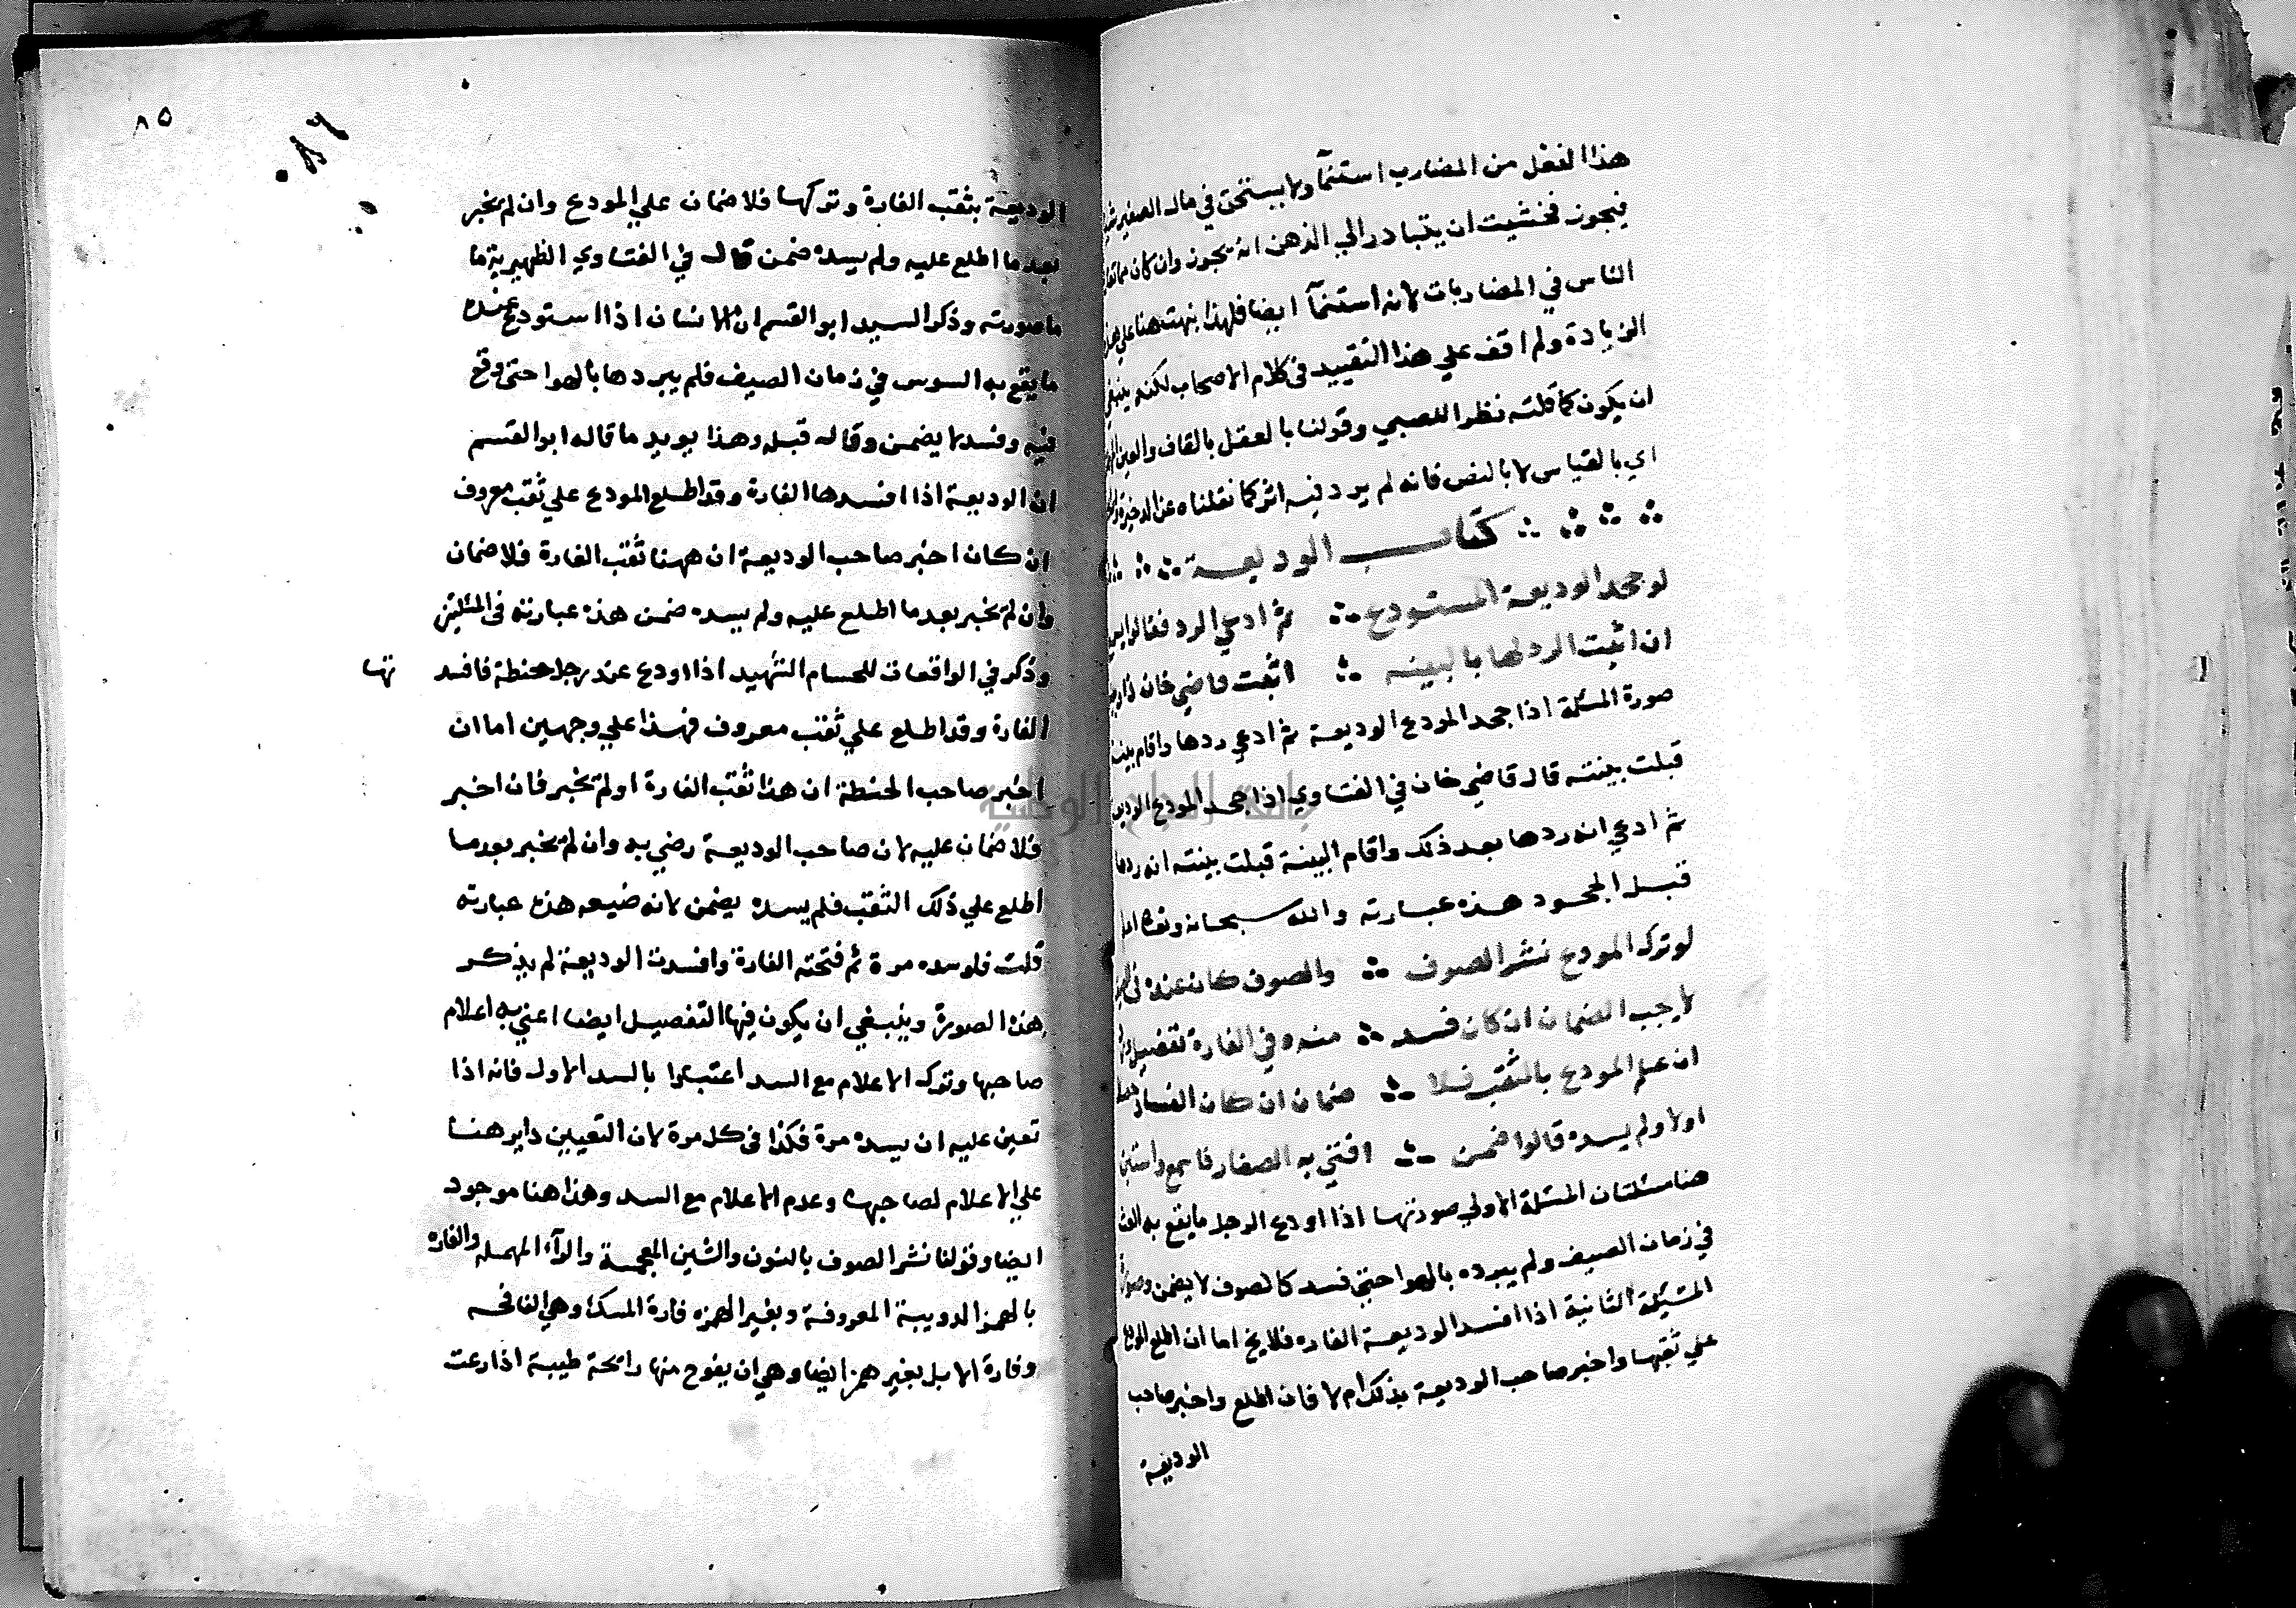 هذا الفعل من المضارب استنمآ ولا يستحق في مال الصغير
فيجوز فخشيت ان يتبادر الي الذهن انه يجوز وان كان مما
الناس في المضاربات لانه استنمآ ايضا فلهذا نبهت هنا علي هذه
الزيادة ولم اقف علي هذا التقييد في كلام الاصحاب لكنه ينبغي
ان يكون كما قلته نظرا للصبي وقولنا بالعقل بالقاف والعين
اي بالقياس لا بالنص فانه لم يرد فيه اثر كما نقلناه عن الذخيرة
كتاب الوديعة
لو جحد الوديعة المستودع ثم ادعي الرد فقالوا
ان اثبت الرد لها بالبينه اثبت قاضي خان
صورة المسئلة اذا جحد المودع الوديعة ثم ادعي ردها واقام بينة
قبلت بينته قال قاضي خان في الفتاوي اذا جحد المودع الوديعة
ثم ادعي انه ردها بعد ذلك واقام البينة قبلت بينته انه ردها
قبل الجحود هذه عبارته والله سبحانه وتعالى اعلم
لو ترك المودع نشر الصوف والصوف كان عنده في
لا يجب الضمان ان كان فسد منه وفي الفارة تفصيل
ان علم المودع بالثقب فلا ضمان ان كان الفساد
اولا ولم يسده قالوا ضمن افتي به الصفار فاسمع واستبن
هنا مسئلتان المسئلة الاولي صورتها اذا اودع الرجل ما يقع به العث
في زمان الصيف ولم يبرده بالهوا حتي فسد كالصوف لا يضمن وصورة
المسئلة الثانية اذا افسد الوديعة الفاره فلا يخ اما ان اطلع المودع
علي ثقبها واخبر صاحب الوديعة بذلك ام لا فان اطلع واخبر صاحب
الوديعة
٨٥
٠٨٦
الوديعة بثقب الفارة وتركها فلا ضمان علي المودع وان لم يخبر
بعد ما اطلع عليه ولم يسده ضمن قال في الفتاوي الظهيرية ما
ما صورته وذكر السيد ابو القسم ان الانسان اذا استودع عنده
ما يقع به السوس في زمان الصيف فلم يبردها بالهوا حتي وقع
فيه وفسد لا يضمن وقال قبله وهذا يويد ما قاله ابو القسم
ان الوديعة اذا افسدها الفارة وقد اطلع المودع علي ثقب معروف
ان كان اخبر صاحب الوديعة ان ههنا ثقب الفارة فلا ضمان
وان لم يخبر بعد ما اطلع عليه ولم يسده ضمن هذه عبارته في المئلتين
وذكر في الواقعات للحسام الشهيد اذا اودع عند رجل حنطة فافسد تها
الفارة وقد اطلع علي ثقب معروف فهذا علي وجهين اما ان
اخبر صاحب الحنطة ان هذا ثقب الفارة او لم يخبر فان اخبر
فلا ضمان عليه لان صاحب الوديعة رضي به وان لم يخبر بعد ما
اطلع علي ذلك الثقب فلم يسده يضمن لانه ضيعه هذه عبارته
قلت فلو سده مرة ثم فتحته الفارة وافسدت الوديعة لم يذكر
هذه الصورة وينبغي ان يكون فيها التفصيل ايضا اعني به اعلام
صاحبها وترك الاعلام مع السد اعتبارا بالسد الاول فانه اذا
تعين عليه ان يسده مرة فكذا في كل مرة لان التعيين داير هنا
علي الاعلام لصاحبها وعدم الاعلام مع السد وهذا هنا موجود
ايضا وقولنا نشر الصوف بالنون والشين المعجمة والرآء المهمله والفاره
بالهمز الدويبة المعروفة وبغير الهمزه فارة المسك وهي النافجه
وفارة الابل بغير همز ايضا وهي ان يفوح منها رائحة طيبة اذا رعت